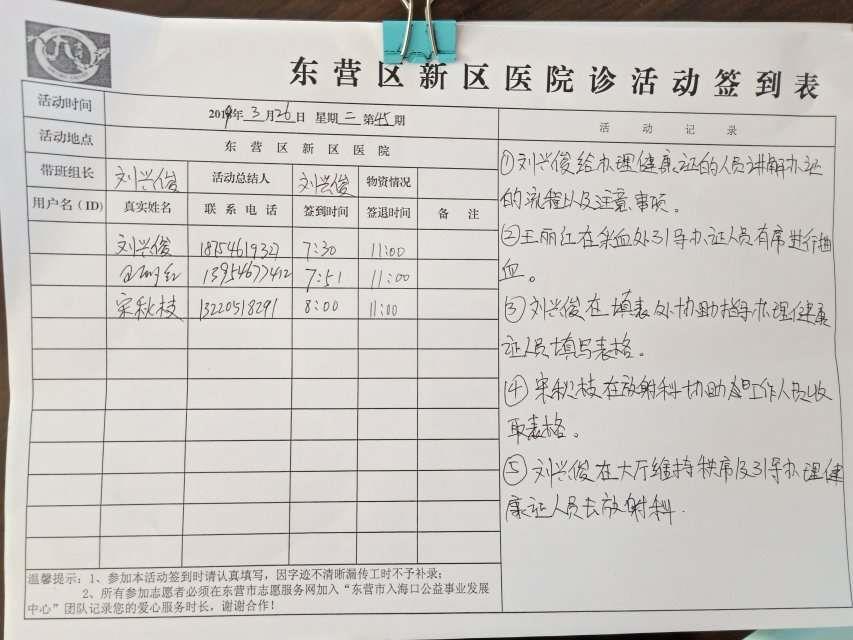 东营区新区医院诊活动签到表
活动时间 2019年3月26日 星期二 第45期
活动地点 东营区新区医院
带班组长 刘兴俊 活动总结人 刘兴俊 物资情况
用户名(ID) 真实姓名 联系电话 签到时间 签退时间 备注
刘兴俊 18754619327 7:30 11:00
王丽红 13954677412 7:51 11:00
宋秋枝 13220518291 8:00 11:00
温馨提示:1、参加本活动签到时请认真填写,因字迹不清晰漏传工时不予补录;
2、所有参加志愿者必须在东营市志愿服务网加入“东营市入海口公益事业发展
中心”团队记录您的爱心服务时长,谢谢合作!
活动记录
①刘兴俊给办理健康证的人员讲解办证
的流程以及注意事项。
②王丽红在采血处引导办证人员有序进行抽
血。
③刘兴俊在填表处协助指导办理健康
证人员填写表格。
④宋秋枝在放射科协助工作人员收
取表格。
⑤刘兴俊在大厅维持秩序及引导办理健
康证人员去放射科.